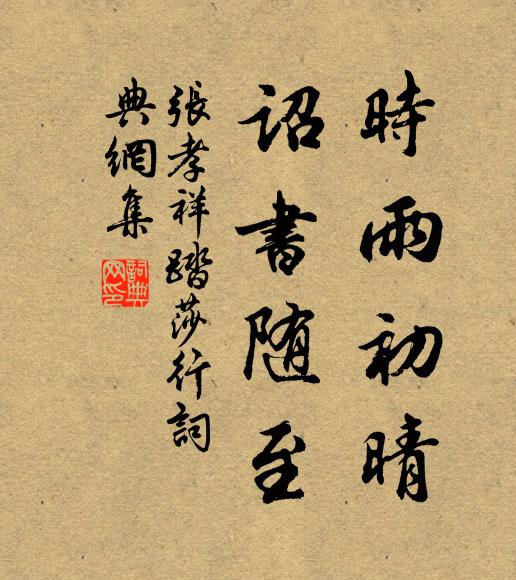 時雨初晴
詔書随至
張孝祥踏莎行詞
典網集
詞典
网印